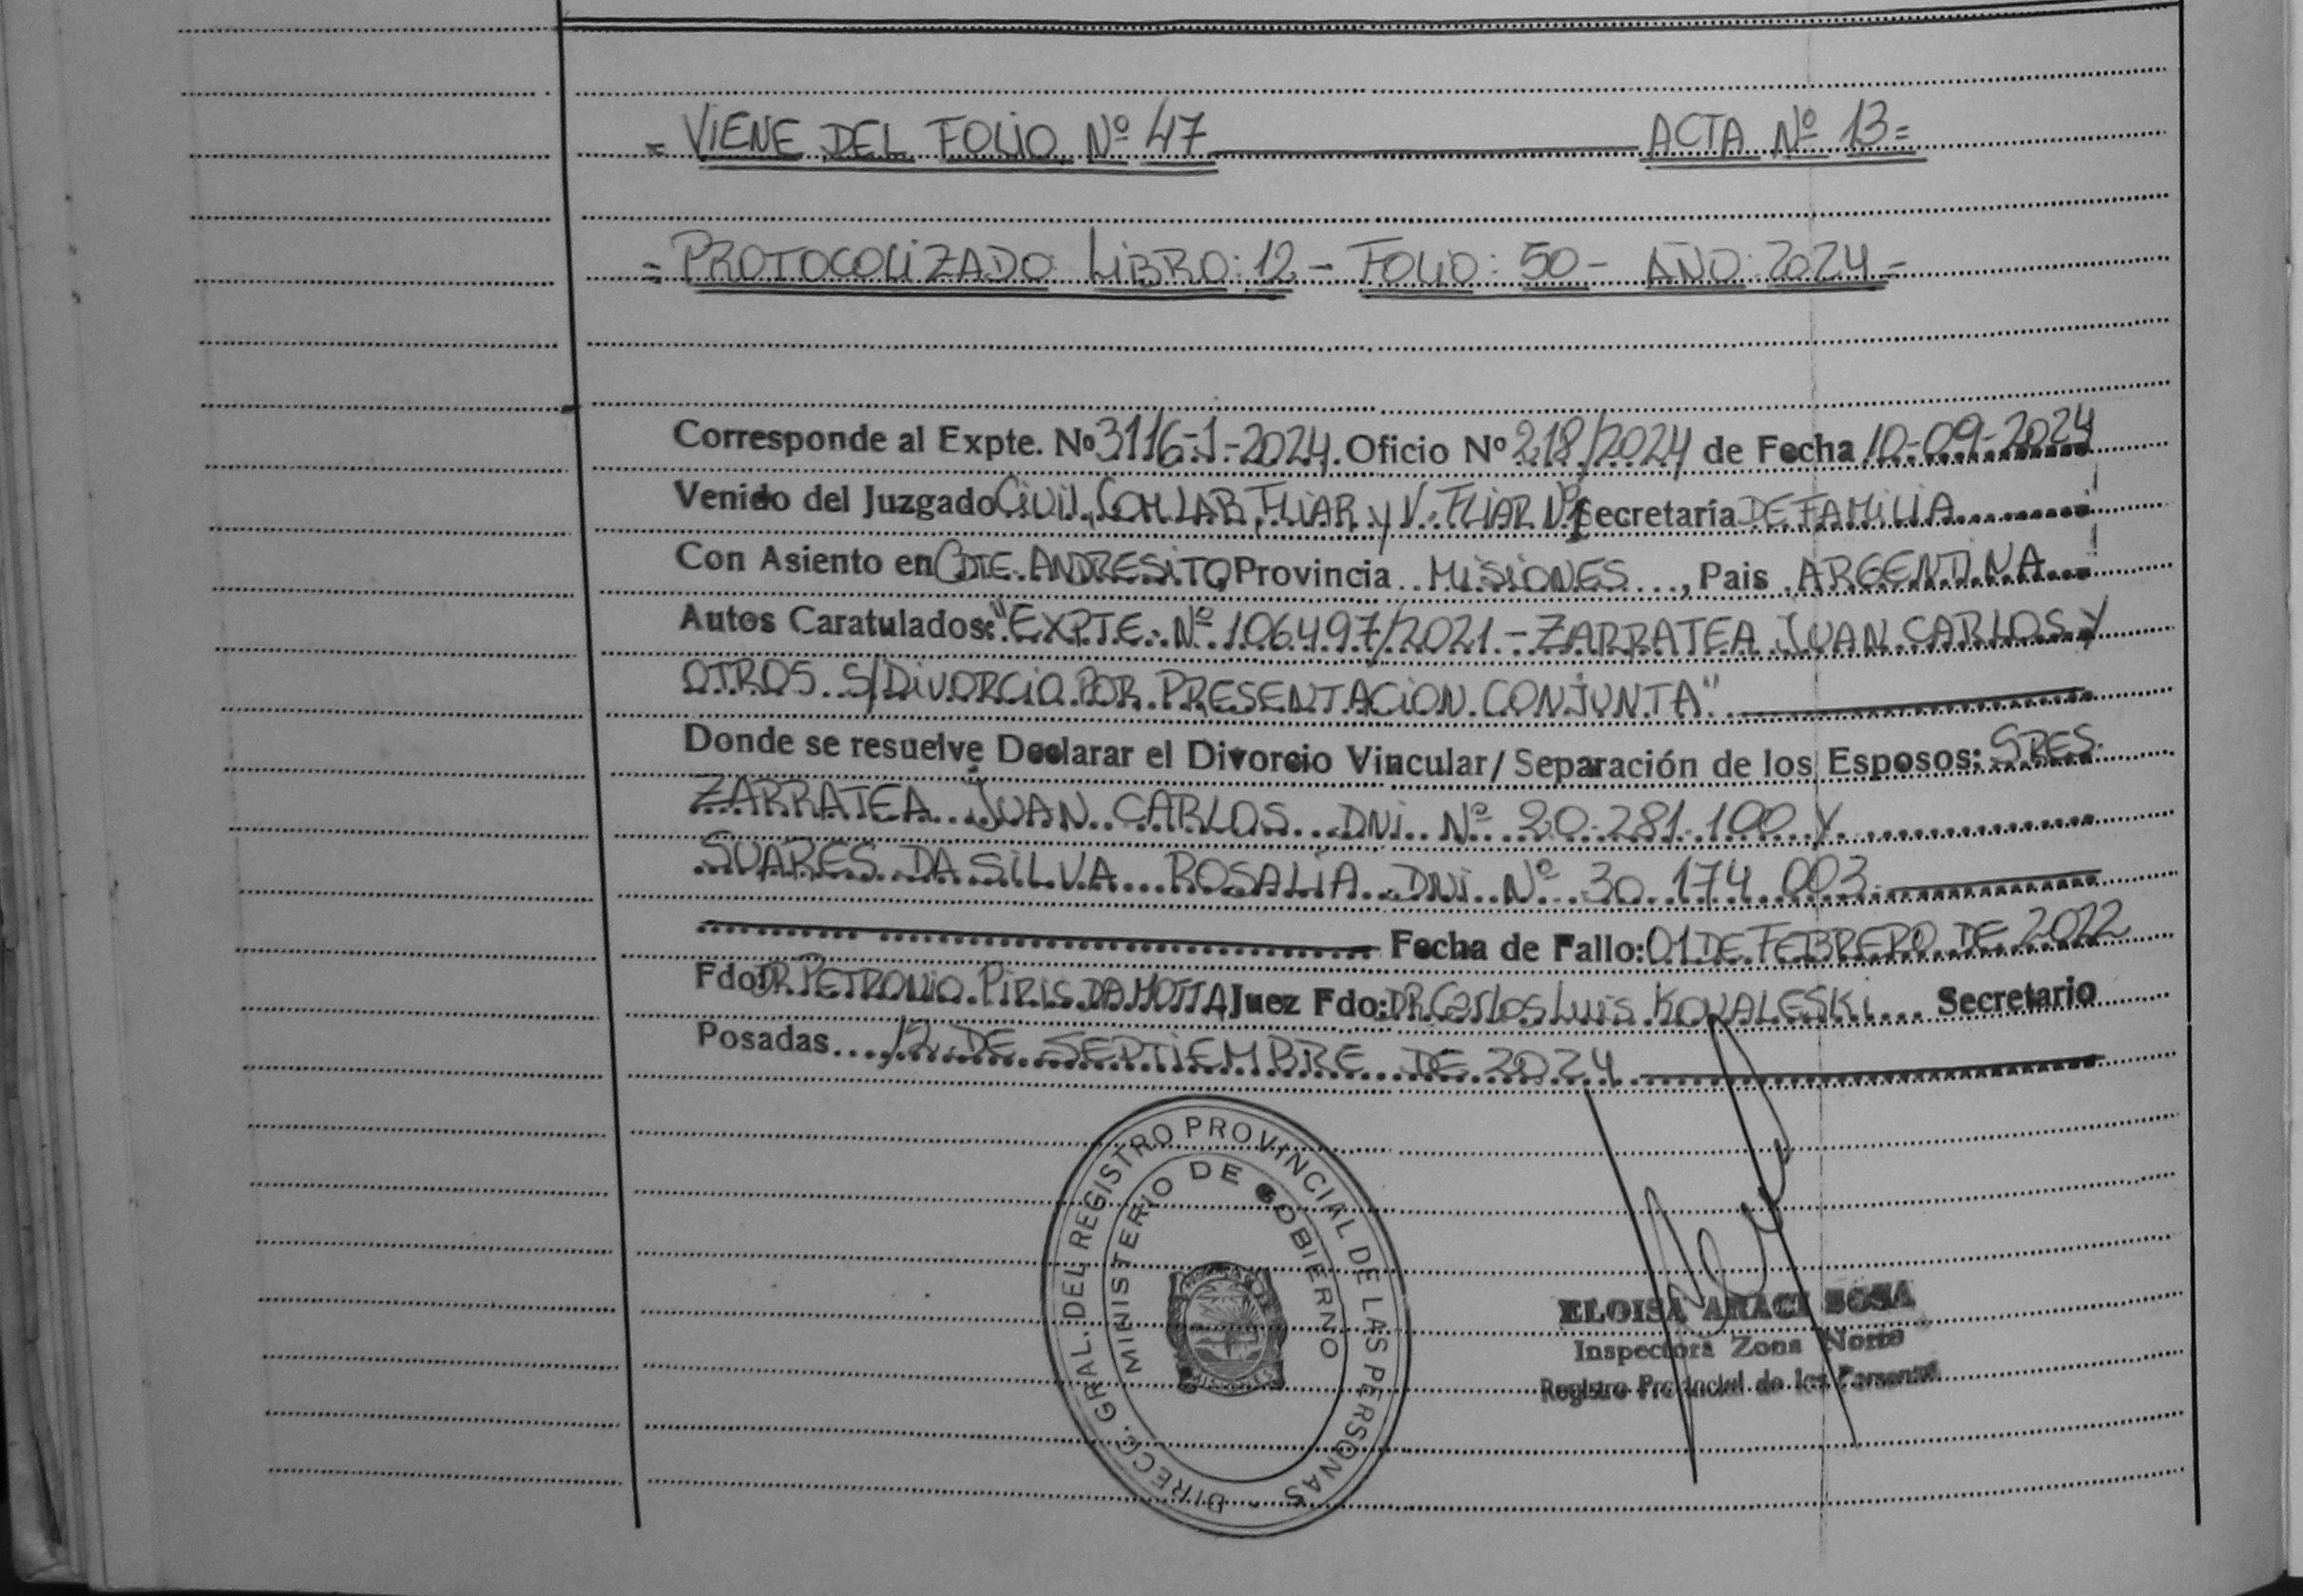 = VIENE DEL FOLIO Nº 47 ACTA Nº 13=
= PROTOCOLIZADO LIBRO: 12 - FOLIO: 50 - AÑO: 2024 -
Corresponde al Expte. Nº 3116-J-2024. Oficio Nº 218/2024 de Fecha 10-09-2024
Venido del Juzgado Civil, COM LAB, FLIAR y V. FLIAR Nº1 Secretaría DE FAMILIA
Con Asiento en CDTE. ANDRESITO Provincia MISIONES, Pais ARGENTINA
Autos Caratulados: "EXPTE. Nº 106497/2021 - ZARRATEA JUAN CARLOS Y
OTROS S/DIVORCIO POR PRESENTACION CONJUNTA"
Donde se resuelve Declarar el Divorcio Vincular/ Separación de los Esposos: SRES.
ZARRATEA JUAN CARLOS DNI Nº 20.281.100 Y
SUARES DA SILVA ROSALIA DNI Nº 30.174.003
Fecha de Fallo: 01 DE FEBRERO DE 2022
Fdo: DR. PETRONIO PIRIS DA MOTTA Juez Fdo: DR. Carlos Luis KOVALESKI Secretario
Posadas 12 DE SEPTIEMBRE DE 2024
DIRECC. GRAL. DEL REGISTRO PROVINCIAL DE LAS PERSONAS -
MINISTERIO DE GOBIERNO
MISIONES
ELOISA ARACI SOSA
Inspectora Zona Norte
Registro Provincial de las Personas